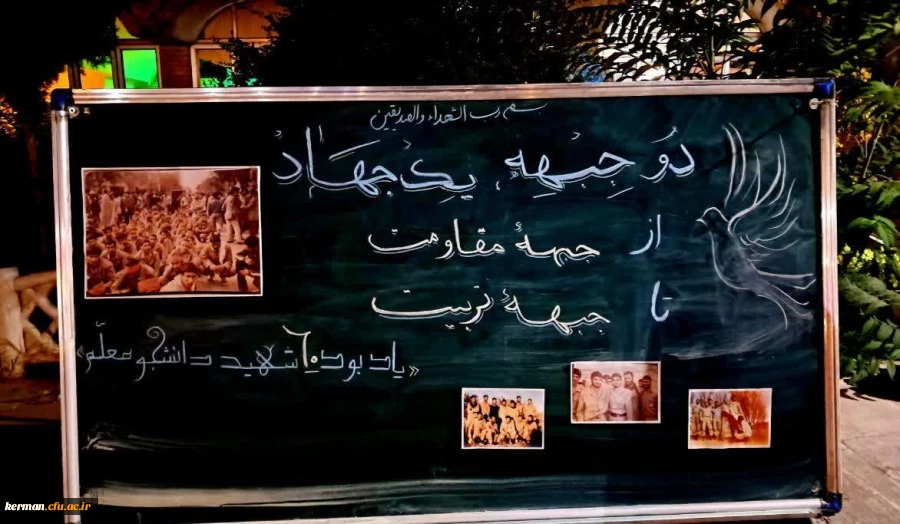 بسم رب الشهداء والصدیقین
دو جبهه، یک جهاد
از جبههٔ مقاومت
تا جبههٔ تربیت
«یادبود شهید دانشجو معلّم»
kerman.cfu.ac.ir